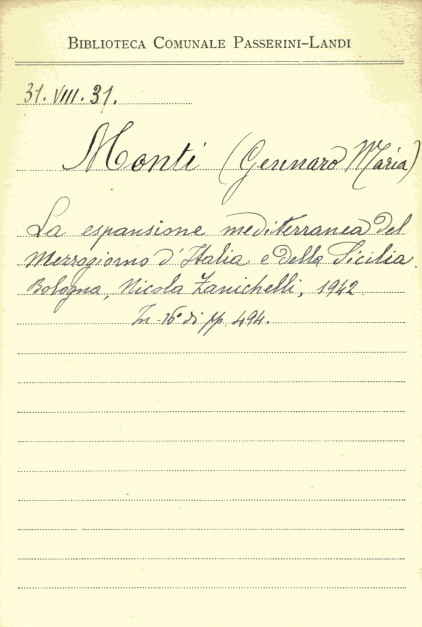 BIBLIOTECA COMUNALE PASSERINI-LANDI
31. VIII. 31.
Monti (Gennaro Maria)
La espansione mediterranea del
Mezzogiorno d'Italia e della Sicilia.
Bologna, Nicola Zanichelli, 1942
In-16° di pp. 494.